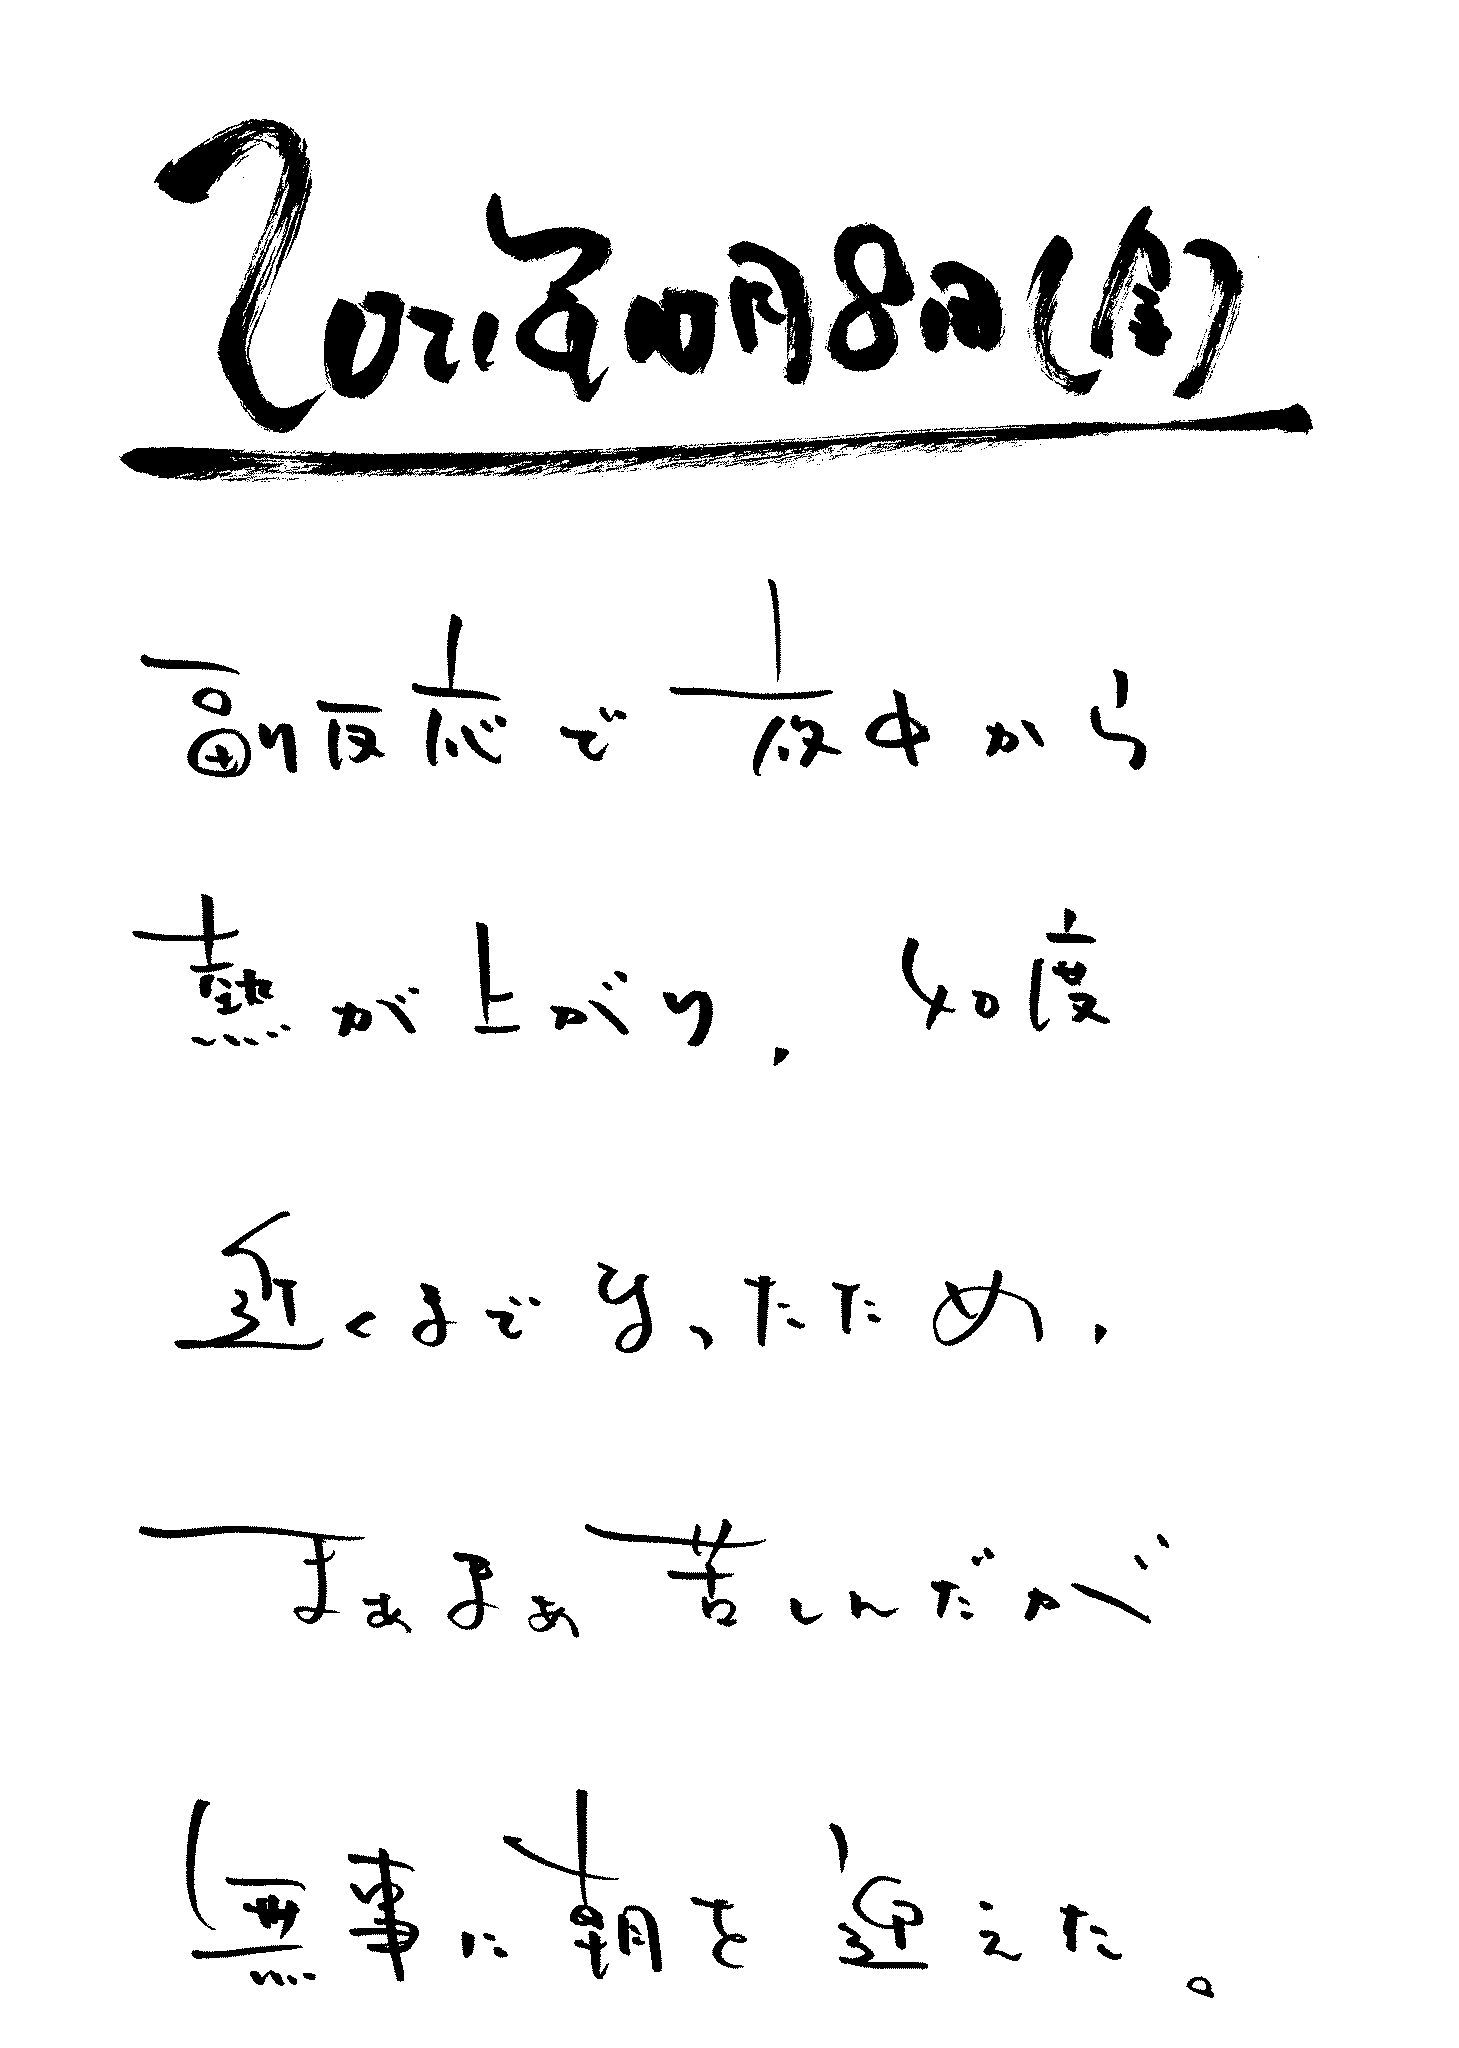 2021年10月8日(金)
副反応で夜中から
熱が上がり、40度
近くまでなったため、
まぁまぁ苦しんだが
無事に朝を迎えた。